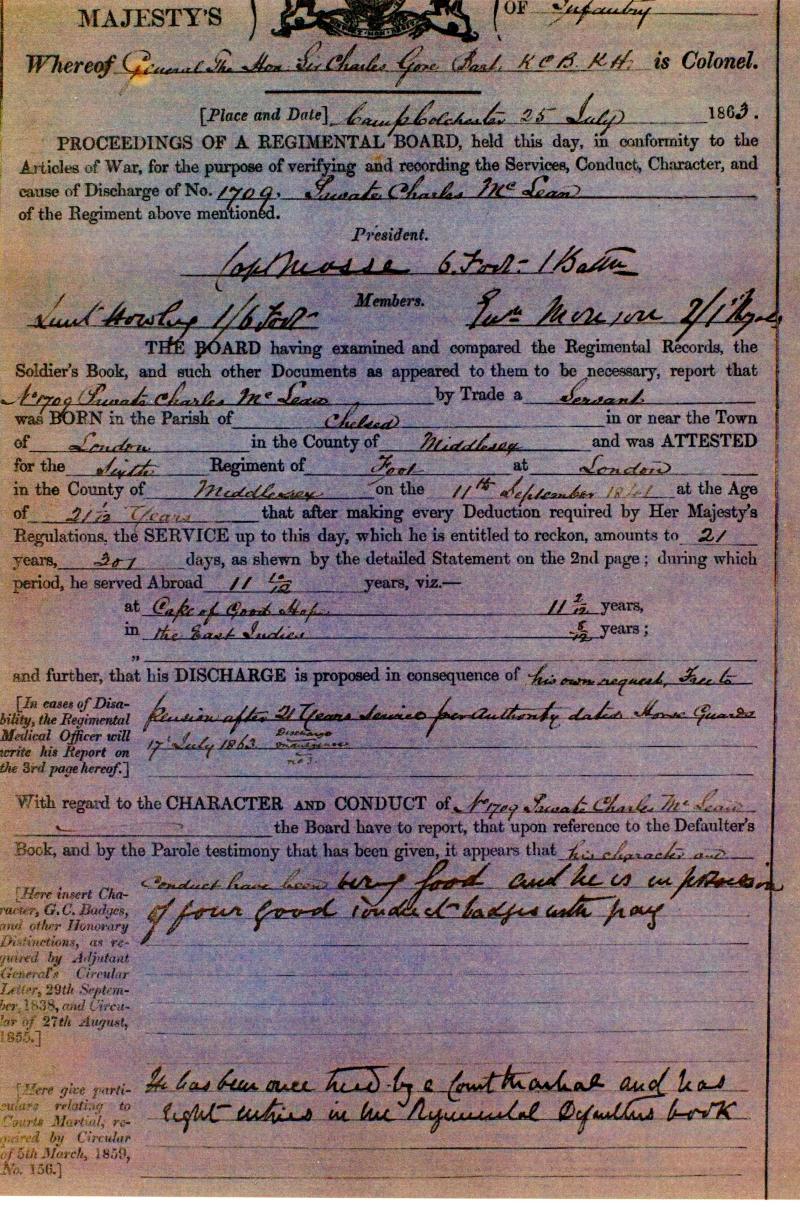 MAJESTY'S OF Infantry
Whereof General The Hon. Sir Charles Gore Bart. K C B. K H. is Colonel.
[Place and Date] Camp Colchester 25 July 1863.
PROCEEDINGS OF A REGIMENTAL BOARD, held this day, in conformity to the
Articles of War, for the purpose of verifying and recording the Services, Conduct, Character, and
cause of Discharge of No. 1709. Private Charles Mc Lean
of the Regiment above mentioned.
President.
Capt Mosse 6. Foot - 1 Battn
Members.
Lieut 1/6 Foot 2/1
THE BOARD having examined and compared the Regimental Records, the
Soldier's Book, and such other Documents as appeared to them to be necessary, report that
No 1709 Private Charles Mc Lean by Trade a Servant
was BORN in the Parish of Chelsea in or near the Town
of London in the County of Middlesex and was ATTESTED
for the Sixth Regiment of Foot at London
in the County of Middlesex on the 11th September at the Age
of Years that after making every Deduction required by Her Majesty's
Regulations, the SERVICE up to this day, which he is entitled to reckon, amounts to 21
years, 301 days, as shewn by the detailed Statement on the 2nd page; during which
period, he served Abroad 11 10/12 years, viz.—
at Cape of Good Hope 11 2/12 years,
in the East Indies 8/12 years;
"
and further, that his DISCHARGE is proposed in consequence of his own request, Free to
[In cases of Disa-
bility, the Regimental
Medical Officer will
write his Report on
the 3rd page hereof.]
Pension after 21 Years Service per Authority dated Horse Guards
17 July 1863 Discharge
With regard to the CHARACTER AND CONDUCT of No 1709 Private Charles Mc Lean
the Board have to report, that upon reference to the Defaulter's
Book, and by the Parole testimony that has been given, it appears that his character and
[Here insert Cha-
racter, G.C. Badges,
and other Honorary
Distinctions, as re-
quired by Adjutant
General's Circular
Letter, 29th Septem-
ber, 1838, and Circu-
lar of 27th August,
1855.]
conduct have been very good and he is in possession
of four good conduct badges with pay
[Here give parti-
culars relating to
Courts Martial, re-
quired by Circular
of 5th March, 1859,
No. 156.]
He has been once tried by a Court Martial and has
eight entries in the Regimental Defaulters book